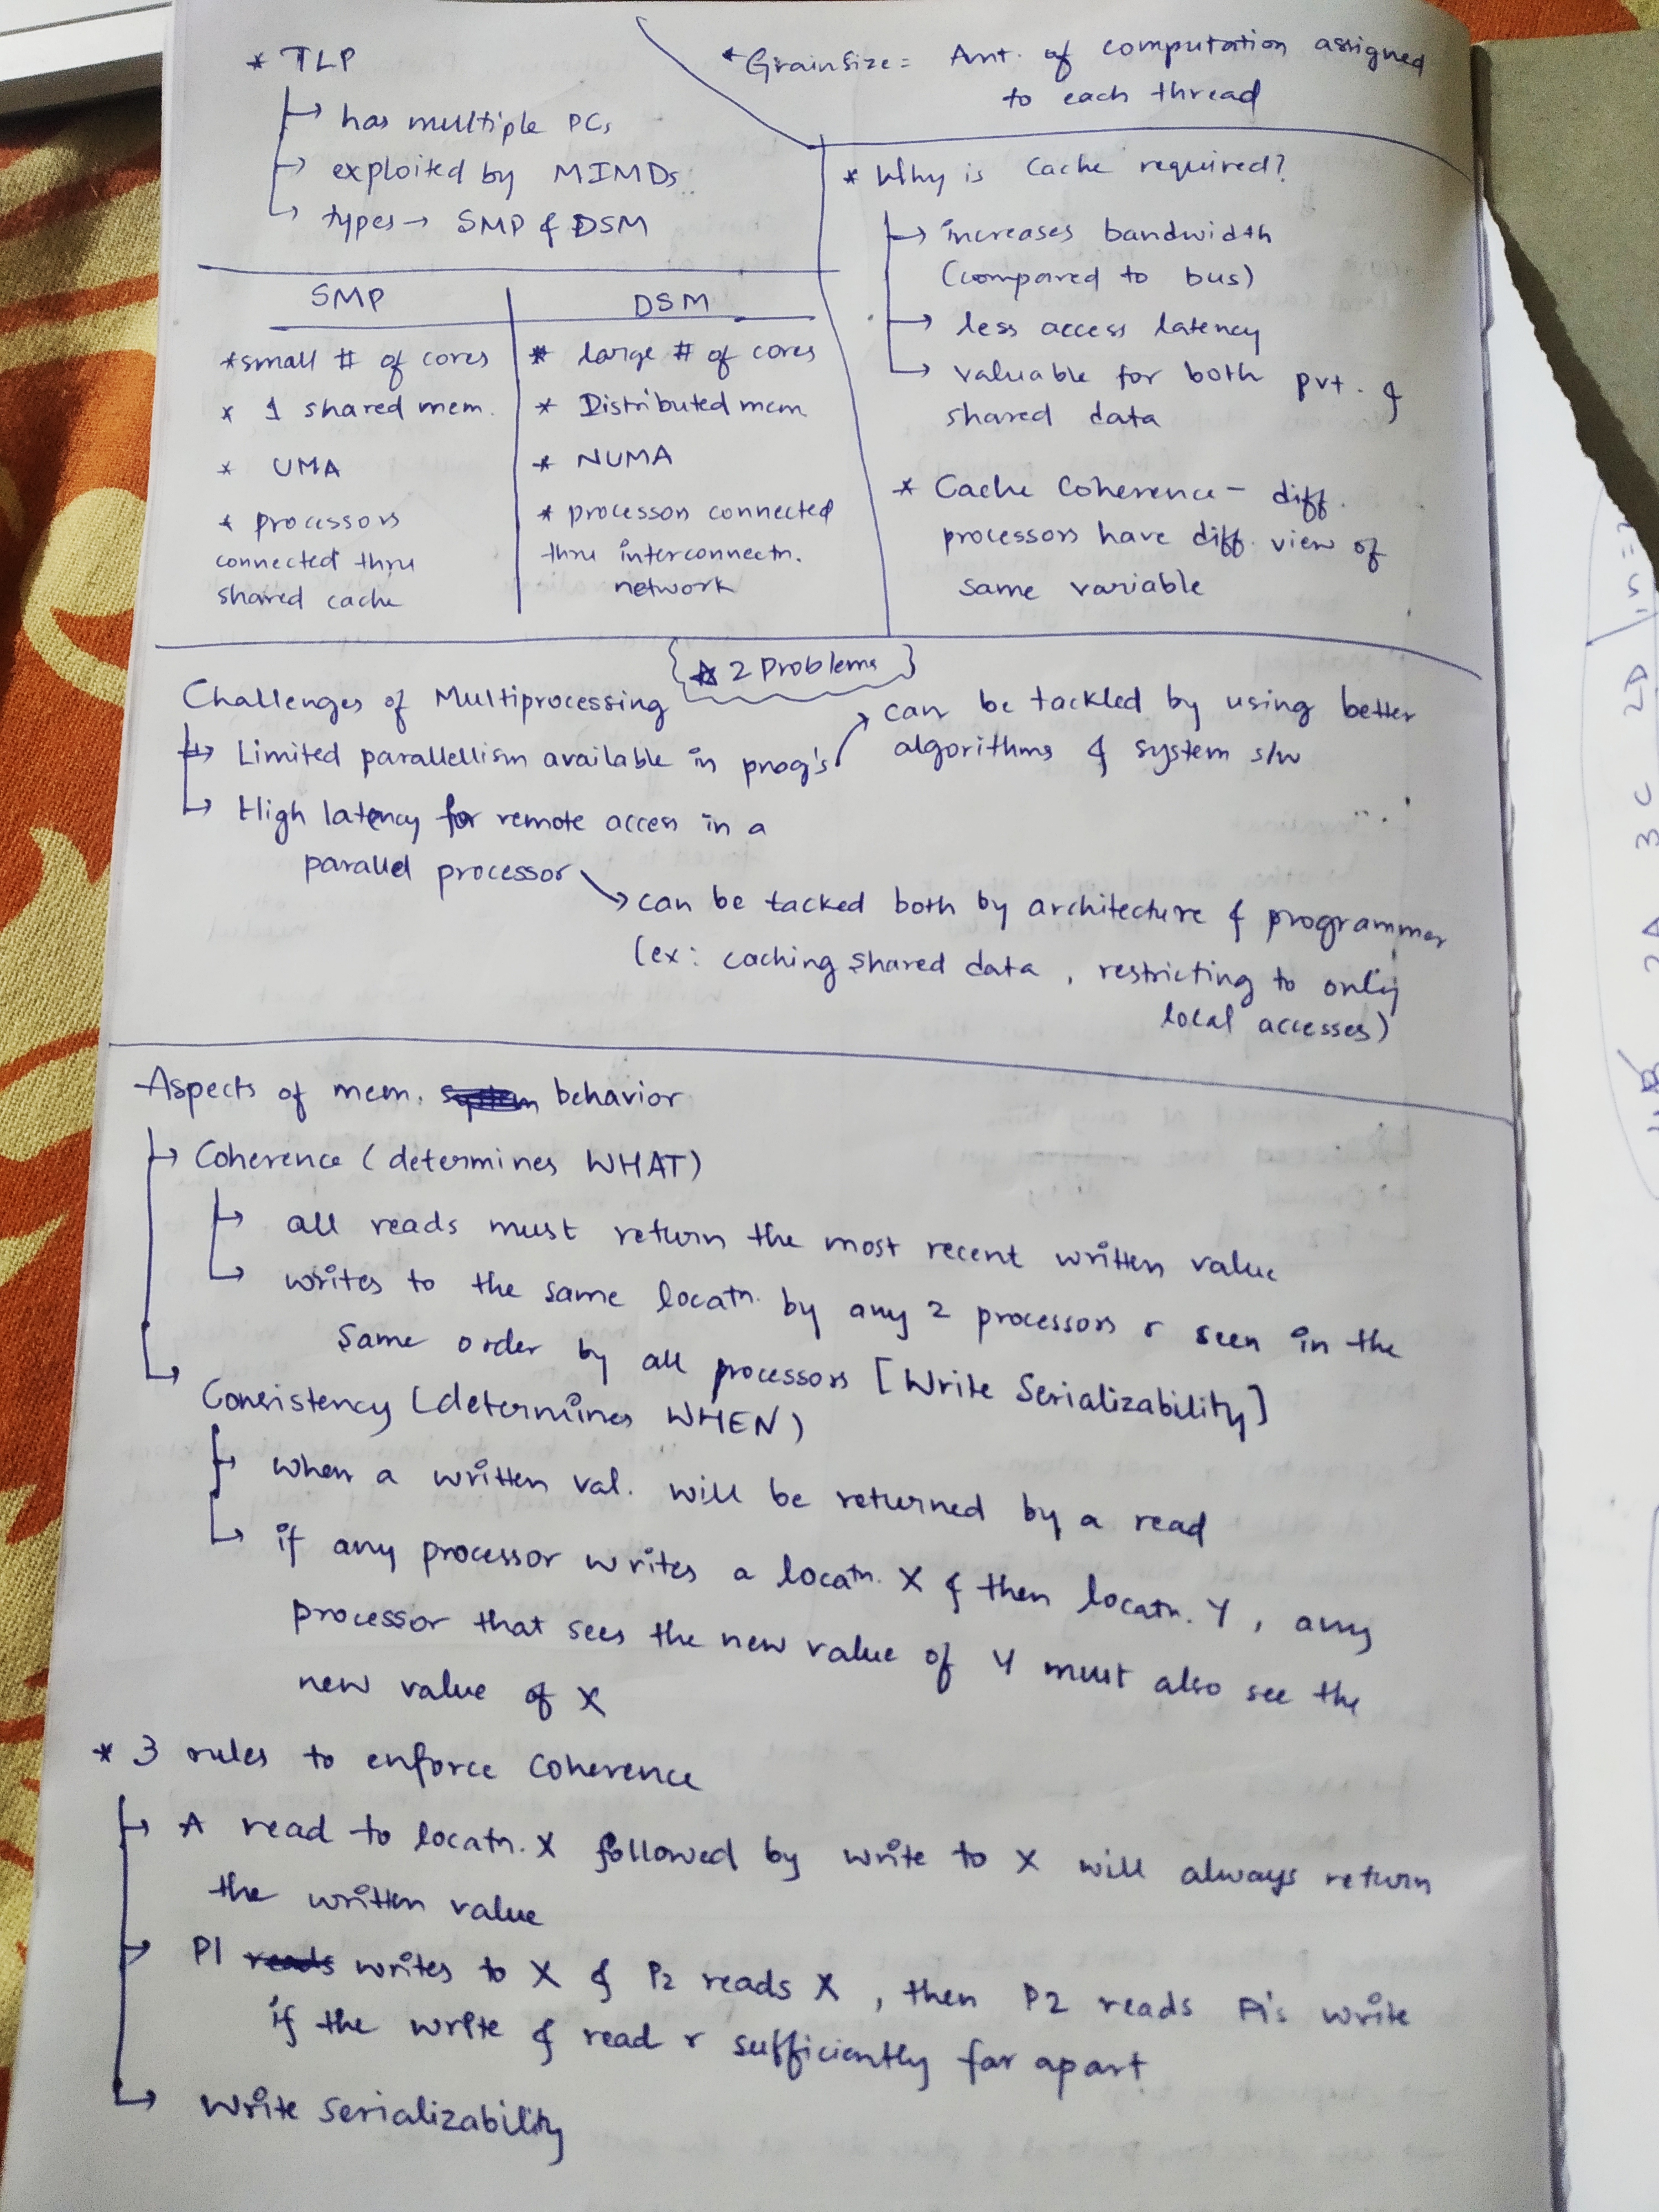 * TLP
↳ has multiple PCs
↳ exploited by MIMDs
↳ types → SMP & DSM
* Grain Size = Amt. of computation assigned
to each thread
SMP
* small # of cores
* 1 shared mem.
* UMA
* processors
connected thru
shared cache
DSM
* large # of cores
* Distributed mem
* NUMA
* processors connected
thru interconnectn.
network
* Why is Cache required?
↳ increases bandwidth
(compared to bus)
↳ less access latency
↳ valuable for both pvt. &
shared data
* Cache Coherence - diff.
processors have diff. view of
same variable
{* 2 Problems}
Challenges of Multiprocessing
↳ Limited parallellism available in prog's
→ can be tackled by using better
algorithms & system s/w
↳ High latency for remote access in a
parallel processor
→ can be tacked both by architecture & programmer
(ex: caching shared data, restricting to only
local accesses)
Aspects of mem. behavior
↳ Coherence (determines WHAT)
↳ all reads must return the most recent written value
↳ writes to the same locatn. by any 2 processors r seen in the
same order by all processors [Write Serializability]
↳ Consistency (determines WHEN)
↳ when a written val. will be returned by a read
↳ if any processor writes a locatn. X & then locatn. Y, any
processor that sees the new value of Y must also see the
new value of X
* 3 rules to enforce coherence
↳ A read to locatn. X followed by write to X will always return
the written value
↳ P1 reads writes to X & P2 reads X, then P2 reads P1's write
if the write & read r sufficiently far apart
↳ Write Serializability